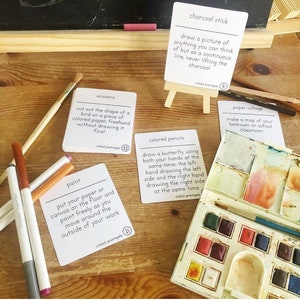 charcoal stick
draw a picture of
anything you can think
of but as a continuous
line, never lifting the
charcoal
scissors
cut out the shape of a
bird on a piece of
colored paper, freehand
without drawing it
first
colored pencils
draw a butterfly using
both your hands at
the same time, the left
hand drawing the left
side and the right hand
drawing the right side
at the same time
paper collage
make a map of your
bedroom or school
classroom
paint
put your paper or
canvas on the floor and
paint freely as you
move around the
outside of your work